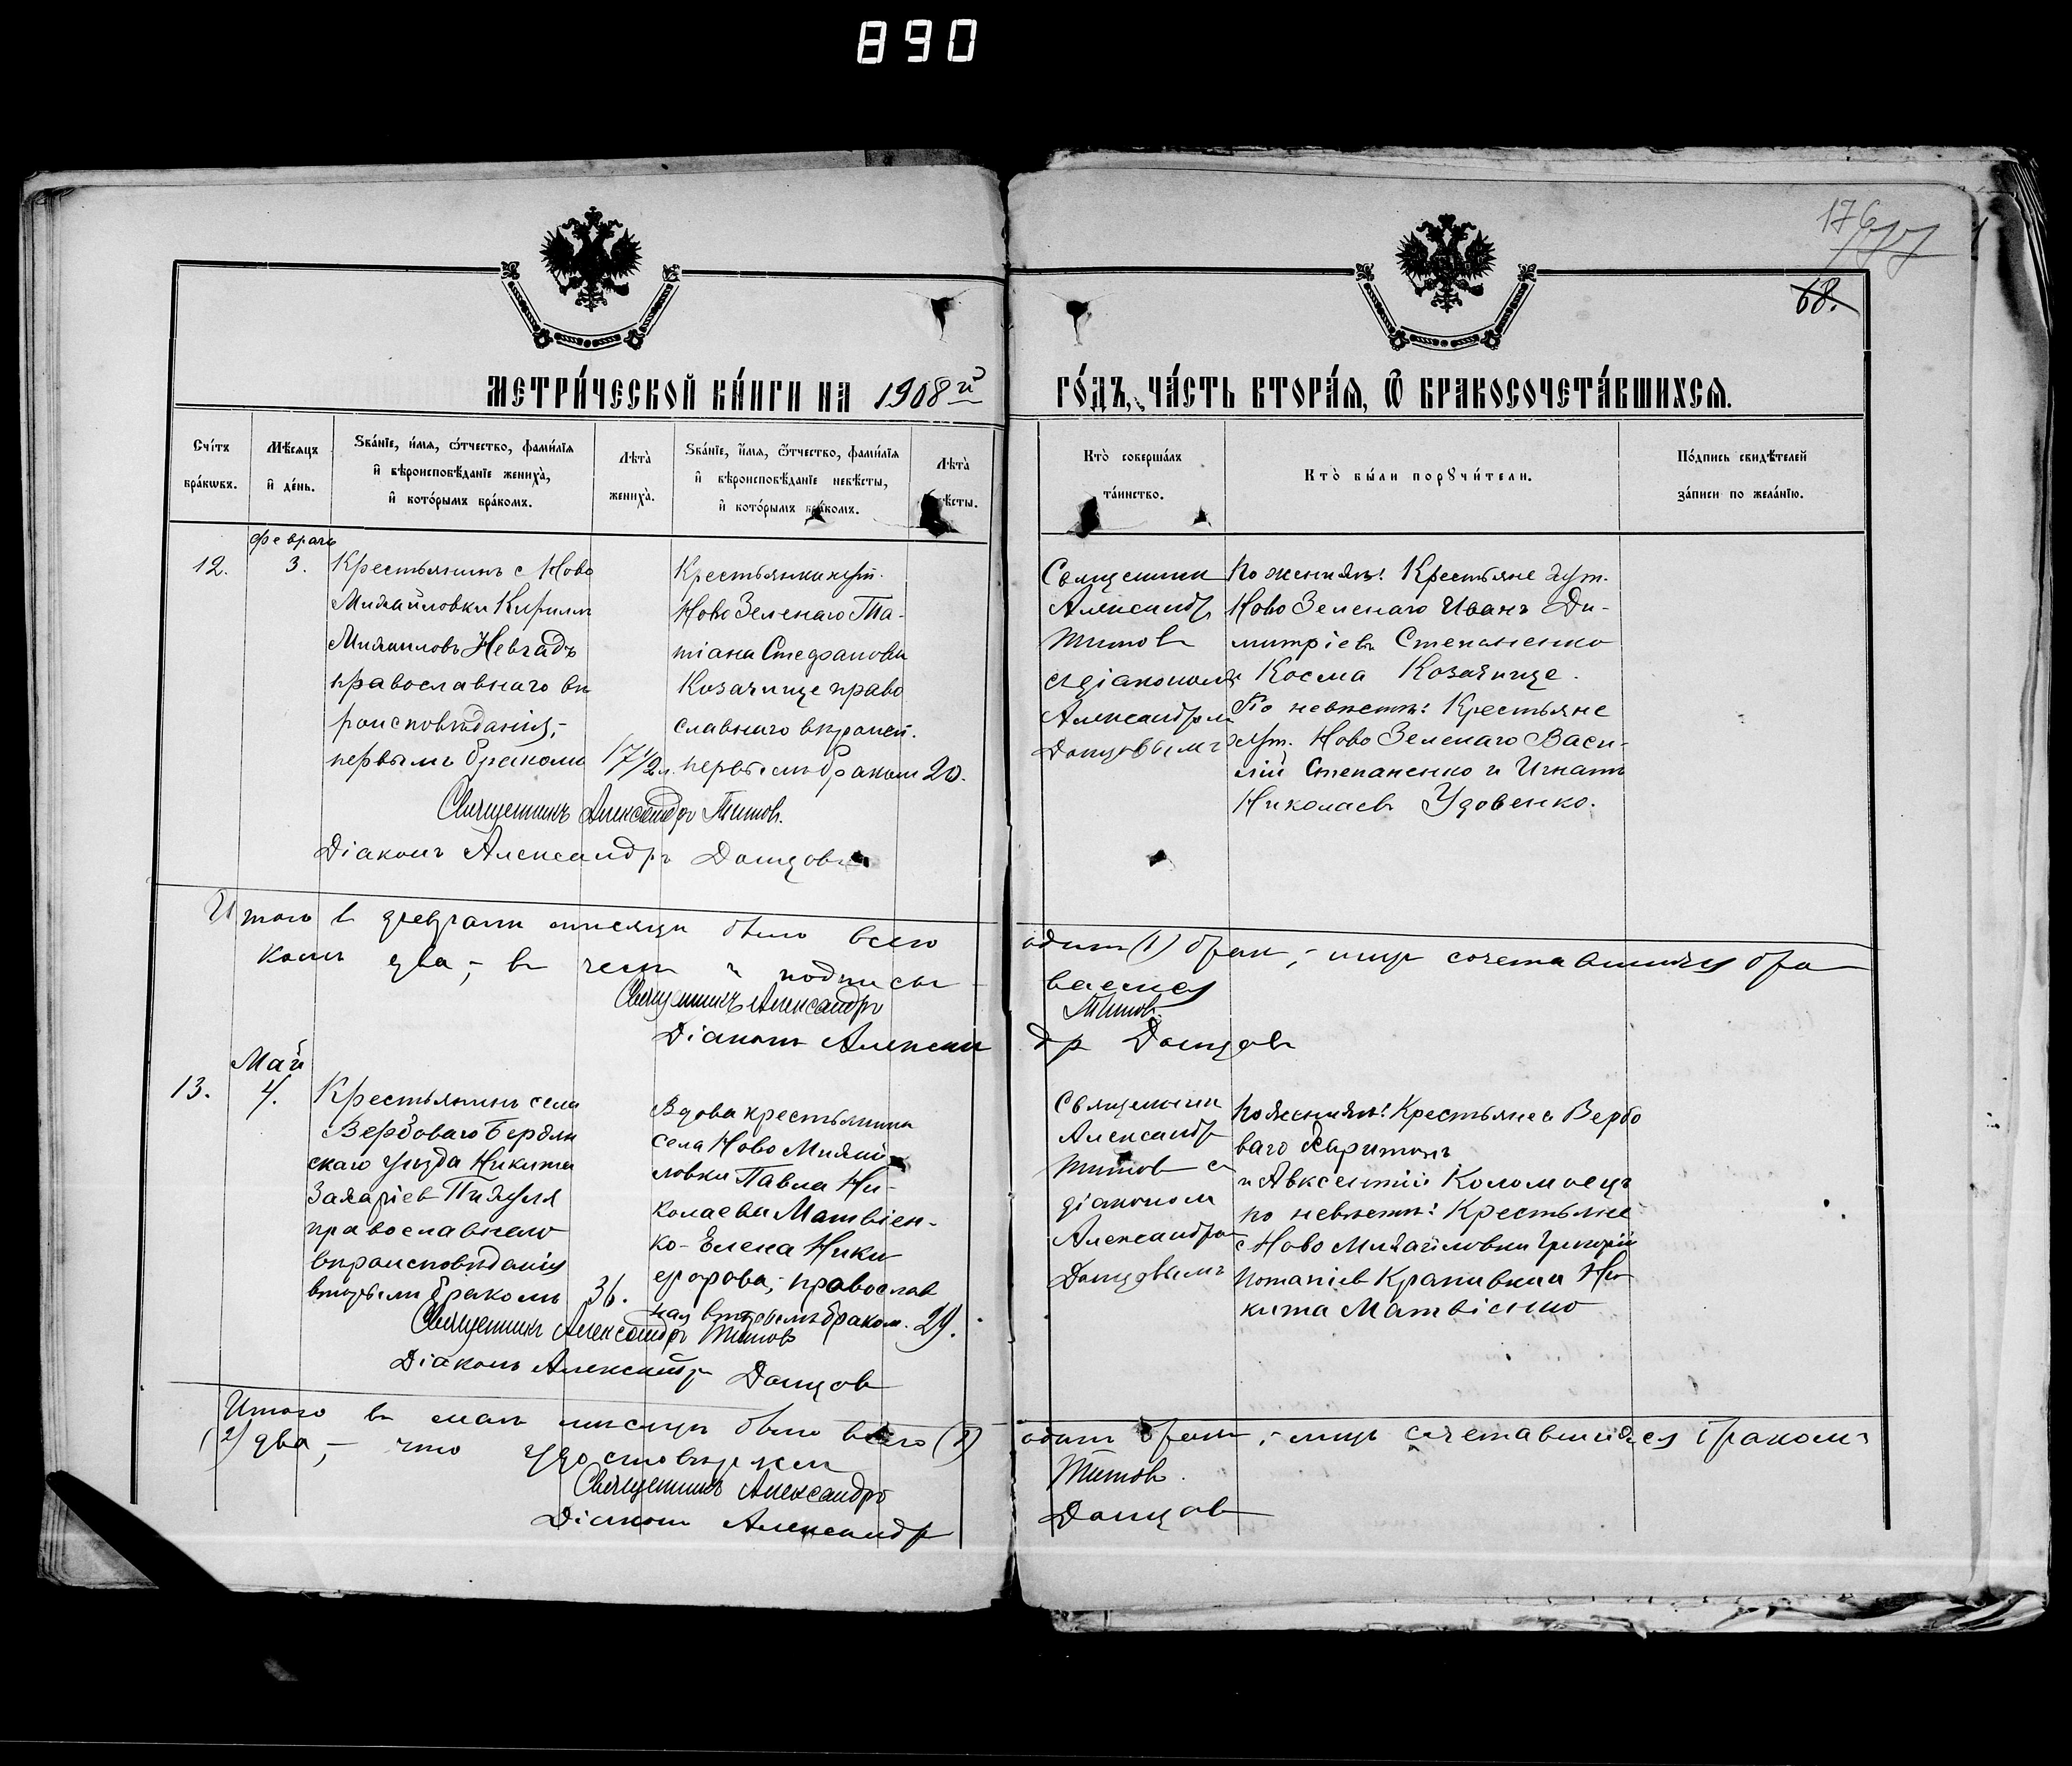 890
176
68.
МЕТРИ́ЧЕСКОЙ КНИ́ГИ НА 1908й ГО́ДЪ, ЧА́СТЬ ВТОРА́Ѧ, Ѿ БРАКОСОЧЕТА́ВШИХСѦ.
Сче́тъ бра́кѡвъ.
Мѣсяцъ и де́нь.
Зва́нїе, и́мѧ, ѻ́тчество, фами́лїѧ
и҆ вѣроисповѣ́данїе жениха̀,
и҆ кото́рымъ бра́комъ.
Лѣта̀
жениха̀.
Зва́нїе, и́мѧ, ѻ́тчество, фами́лїѧ
и҆ вѣроисповѣ́данїе невѣ́сты,
и҆ кото́рымъ бра́комъ.
Лѣта̀
ѣсты.
Кто̀ соверша́лъ
та́инство.
Кто̀ бы́ли порꙋчи́тели.
По́дпись свидѣ́телей
за́писи по жела́нїю.
12.
Февраль
3.
Крестьянинъ с Ново
Михайловки Кириллъ
Михаиловъ
православнаго вѣ
роисповѣданія,-
первымъ бракомъ
17½ л.
Крестьянка хут.
Ново Зеленаго Та-
тіана Стефанова
Козачище право
славнаго вѣроисп.
первымъ браком
20.
Священникъ Александръ Титовъ.
Діаконъ Александръ Донцовъ
Священник
Александр
Титов
с діакономъ
Александром
Донцовымъ
По женихѣ: Крестьяне хут.
Ново Зеленаго Иванъ Ди-
митріевъ Степаненко
и Косма Козачище.
По невѣстѣ: Крестьяне
хут. Ново Зеленаго Васи-
лій Степаненко и Игнатъ
Николаевъ Удовенко.
Итого в февралѣ мѣсяцѣ было всего один (1) брак,- лицъ сочетавшихся бра
комъ два,- в чемъ и подписы- ваемся
Священникъ Александръ Титов.
Діаконъ Александр Донцовъ
13.
Май
4.
Крестьянинъ села
Вербоваго Бердян
скаго уѣзда Никита
Захаріев Пихуля
православнаго
вѣроисповѣданія
вторымъ бракомъ
36.
Вдова крестьянина
села Ново Михай
ловки Павла Ни-
колаева Матвіен-
ко - Елена Ники
форова,- православ
ная вторымъ браком.
29.
Священникъ Александръ Титовъ
Діаконъ Александръ Донцовъ
Священник
Александръ
Титов с
діаконом
Александром
Донцовымъ
По женихѣ: Крестьяне с Вербо
ваго Харитонъ
и Авксентій Коломоецъ
по невѣстѣ: Крестьяне
с Ново Михайловки Григорій
Потапіев Крапивка и Ни
кита Матвіенко
Итого в маѣ мѣсяцѣ было всего (1) один брак,- лицъ сочетавшихся бракомъ
(2) два,- что удостовѣряем
Священникъ Александръ Титовъ.
Діаконъ Александр Донцовъ